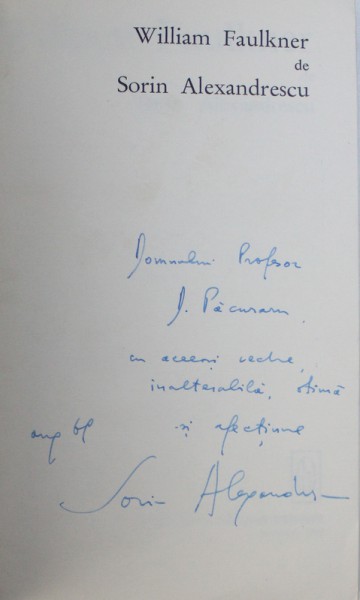 William Faulkner
de
Sorin Alexandrescu
Domnului Profesor
D. Păcuraru,
cu aceeași veche,
inalterabilă, stimă
aug 69 și afecțiune
Sorin Alexandrescu